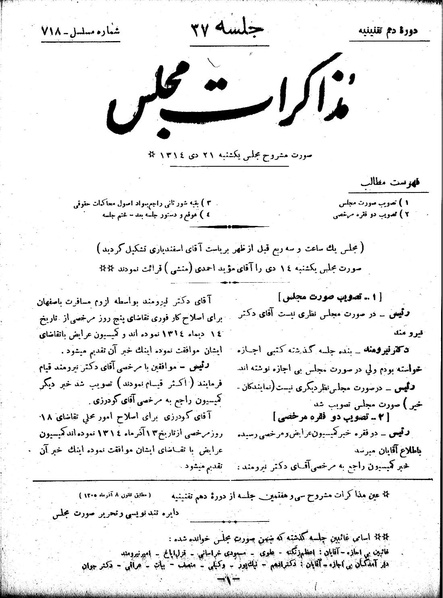 دورهٔ دهم تقنینیه
جلسه ۳۷
شماره مسلسل - ۷۱۸
مذاکرات مجلس
صورت مشروح مجلس یکشنبه ۲۱ دی ۱۳۱۴ *
فهرست مطالب
۱ ) تصویب صورت مجلس
۲ ) تصویب دو فقره مرخصی
۳ ) بقیه شور ثانی راجع بمواد اصول محاکمات حقوقی
۴ ) موقع و دستور جلسه بعد - ختم جلسه
( مجلس یك ساعت و سه ربع قبل از ظهر بریاست آقای اسفندیاری تشکیل گردید )
صورت مجلس یکشنبه ۱۴ دی را آقای مؤید احمدی (منشی) قرائت نمودند **
[ ۱ - تصویب صورت مجلس ]
رئیس - در صورت مجلس نظری نیست آقای دکتر
نیرومند
دکتر نیرومند - بنده جلسه گذشته کتبی اجازه
خواسته بودم ولی در صورت مجلس بی اجازه نوشته اند.
رئیس - در صورت مجلس نظر دیگری نیست (نمایندگان -
خیر ) صورت مجلس تصویب شد
[ ۲ - تصویب دو فقره مرخصی ]
رئیس - دو فقره خبر کمیسیون عرایض و مرخصی رسیده
باطلاع آقایان میرسد
خبر کمیسیون راجع به مرخصی آقای دکتر نیرومند :
آقای دکتر نیرومند بواسطه لزوم مسافرت باصفهان
برای اصلاح کار فوری تقاضای پنج روز مرخصی از تاریخ
۱۴ دیماه ۱۳۱۴ نموده اند و کمیسیون عرایض باتقاضای
ایشان موافقت نموده اینك خبر آن تقدیم میشود .
رئیس - موافقین با مرخصی آقای دکتر نیرومند قیام
فرمایند ( اکثر قیام نمودند ) تصویب شد خبر دیگر
کمیسیون راجع به مرخصی آقای گودرزی .
آقای گودرزی برای اصلاح امور محلی تقاضای ۱۸
روز مرخصی از تاریخ ۱۳ آذرماه ۱۳۱۴ نموده اند کمیسیون
عرایض با تقاضای ایشان موافقت نموده اینك خبر آن
تقدیم میشود
* عین مذاکرات مشروح سی و هفتمین جلسه از دوره دهم تقنینیه
(مطابق قانون ۸ آذرماه ۱۳۰۵)
دایره تندنویسی و تحریر صورت مجلس
** اسامی غائبین جلسه گذشته که ضمن صورت مجلس خوانده شده :
غائبین بی اجازه - آقایان : اعظم زنگنه - علوی - مسعودی خراسانی - قراگزلو - امیر نیرومند
دیر آمدگان بی اجازه - آقایان : دکتر ادهم - نیك پور - وکیلی - منصف - بیات - عراقی - دکتر جوان
- ۱ -